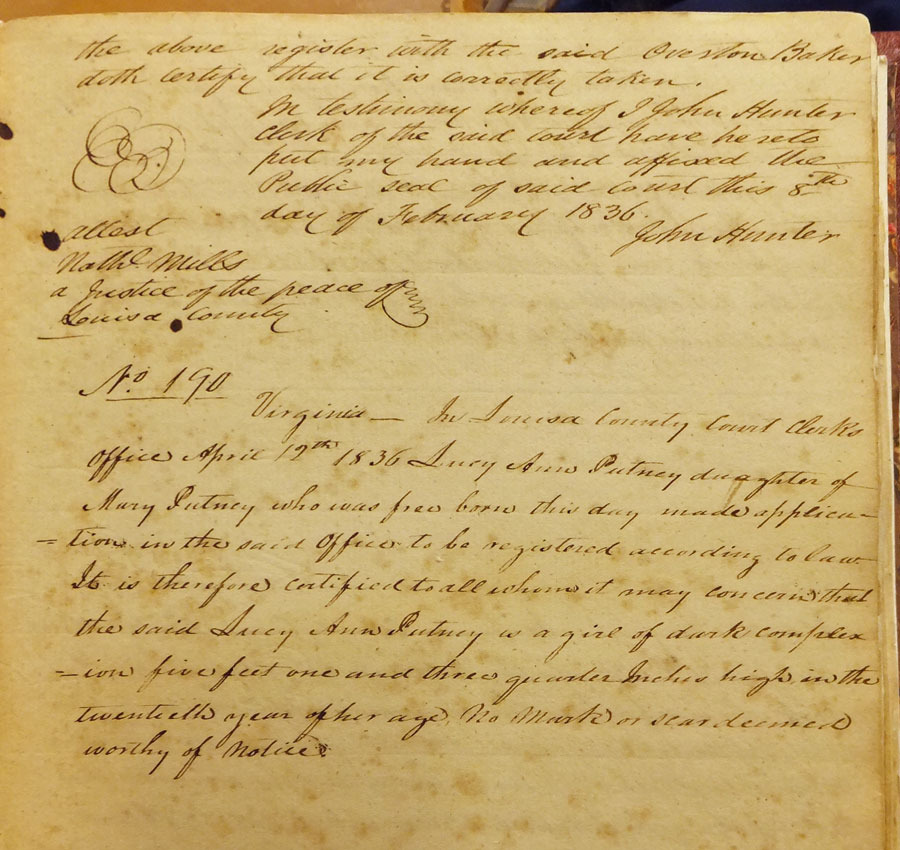 the above register with the said Overton Baker
doth certify that it is correctly taken.
In testimony whereof I John Hunter
Clerk of the said court have hereto
put my hand and affixed the
Public seal of said Court this 8th
day of February 1836.
John Hunter
attest
Nathl. Mills
a Justice of the peace of
Louisa County
No. 190
Virginia — In Louisa County Court Clerks
Office April 12th 1836 Lucy Ann Putney daughter of
Mary Putney who was free born this day made applica=
=tion in the said Office to be registered according to law
It is therefore certified to all whom it may concern that
the said Lucy Ann Putney is a girl of dark complex
=ion five feet one and three quarter Inches high in the
twentieth year of her age, No Mark or scar deemed
worthy of Notice.